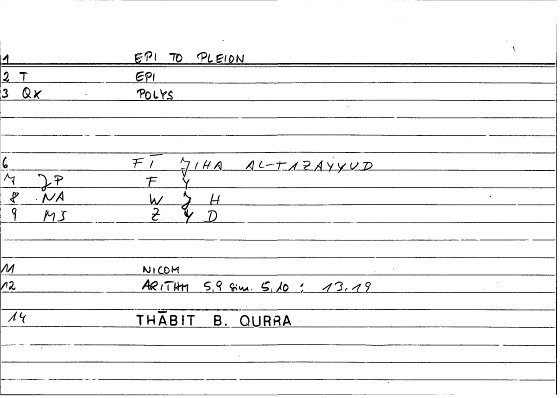 1 EPI TO PLEION
2 T EPI
3 QX POLYS
6 FĪ ʒIHA AL-TAZAYYUD
7 ʒP F Y
8 NA W ʒ H
9 MI Z Y D
11 NICOM
12 ARITHM 5,9 sim. 5,10 : 13,19
14 THĀBIT B. QURRA